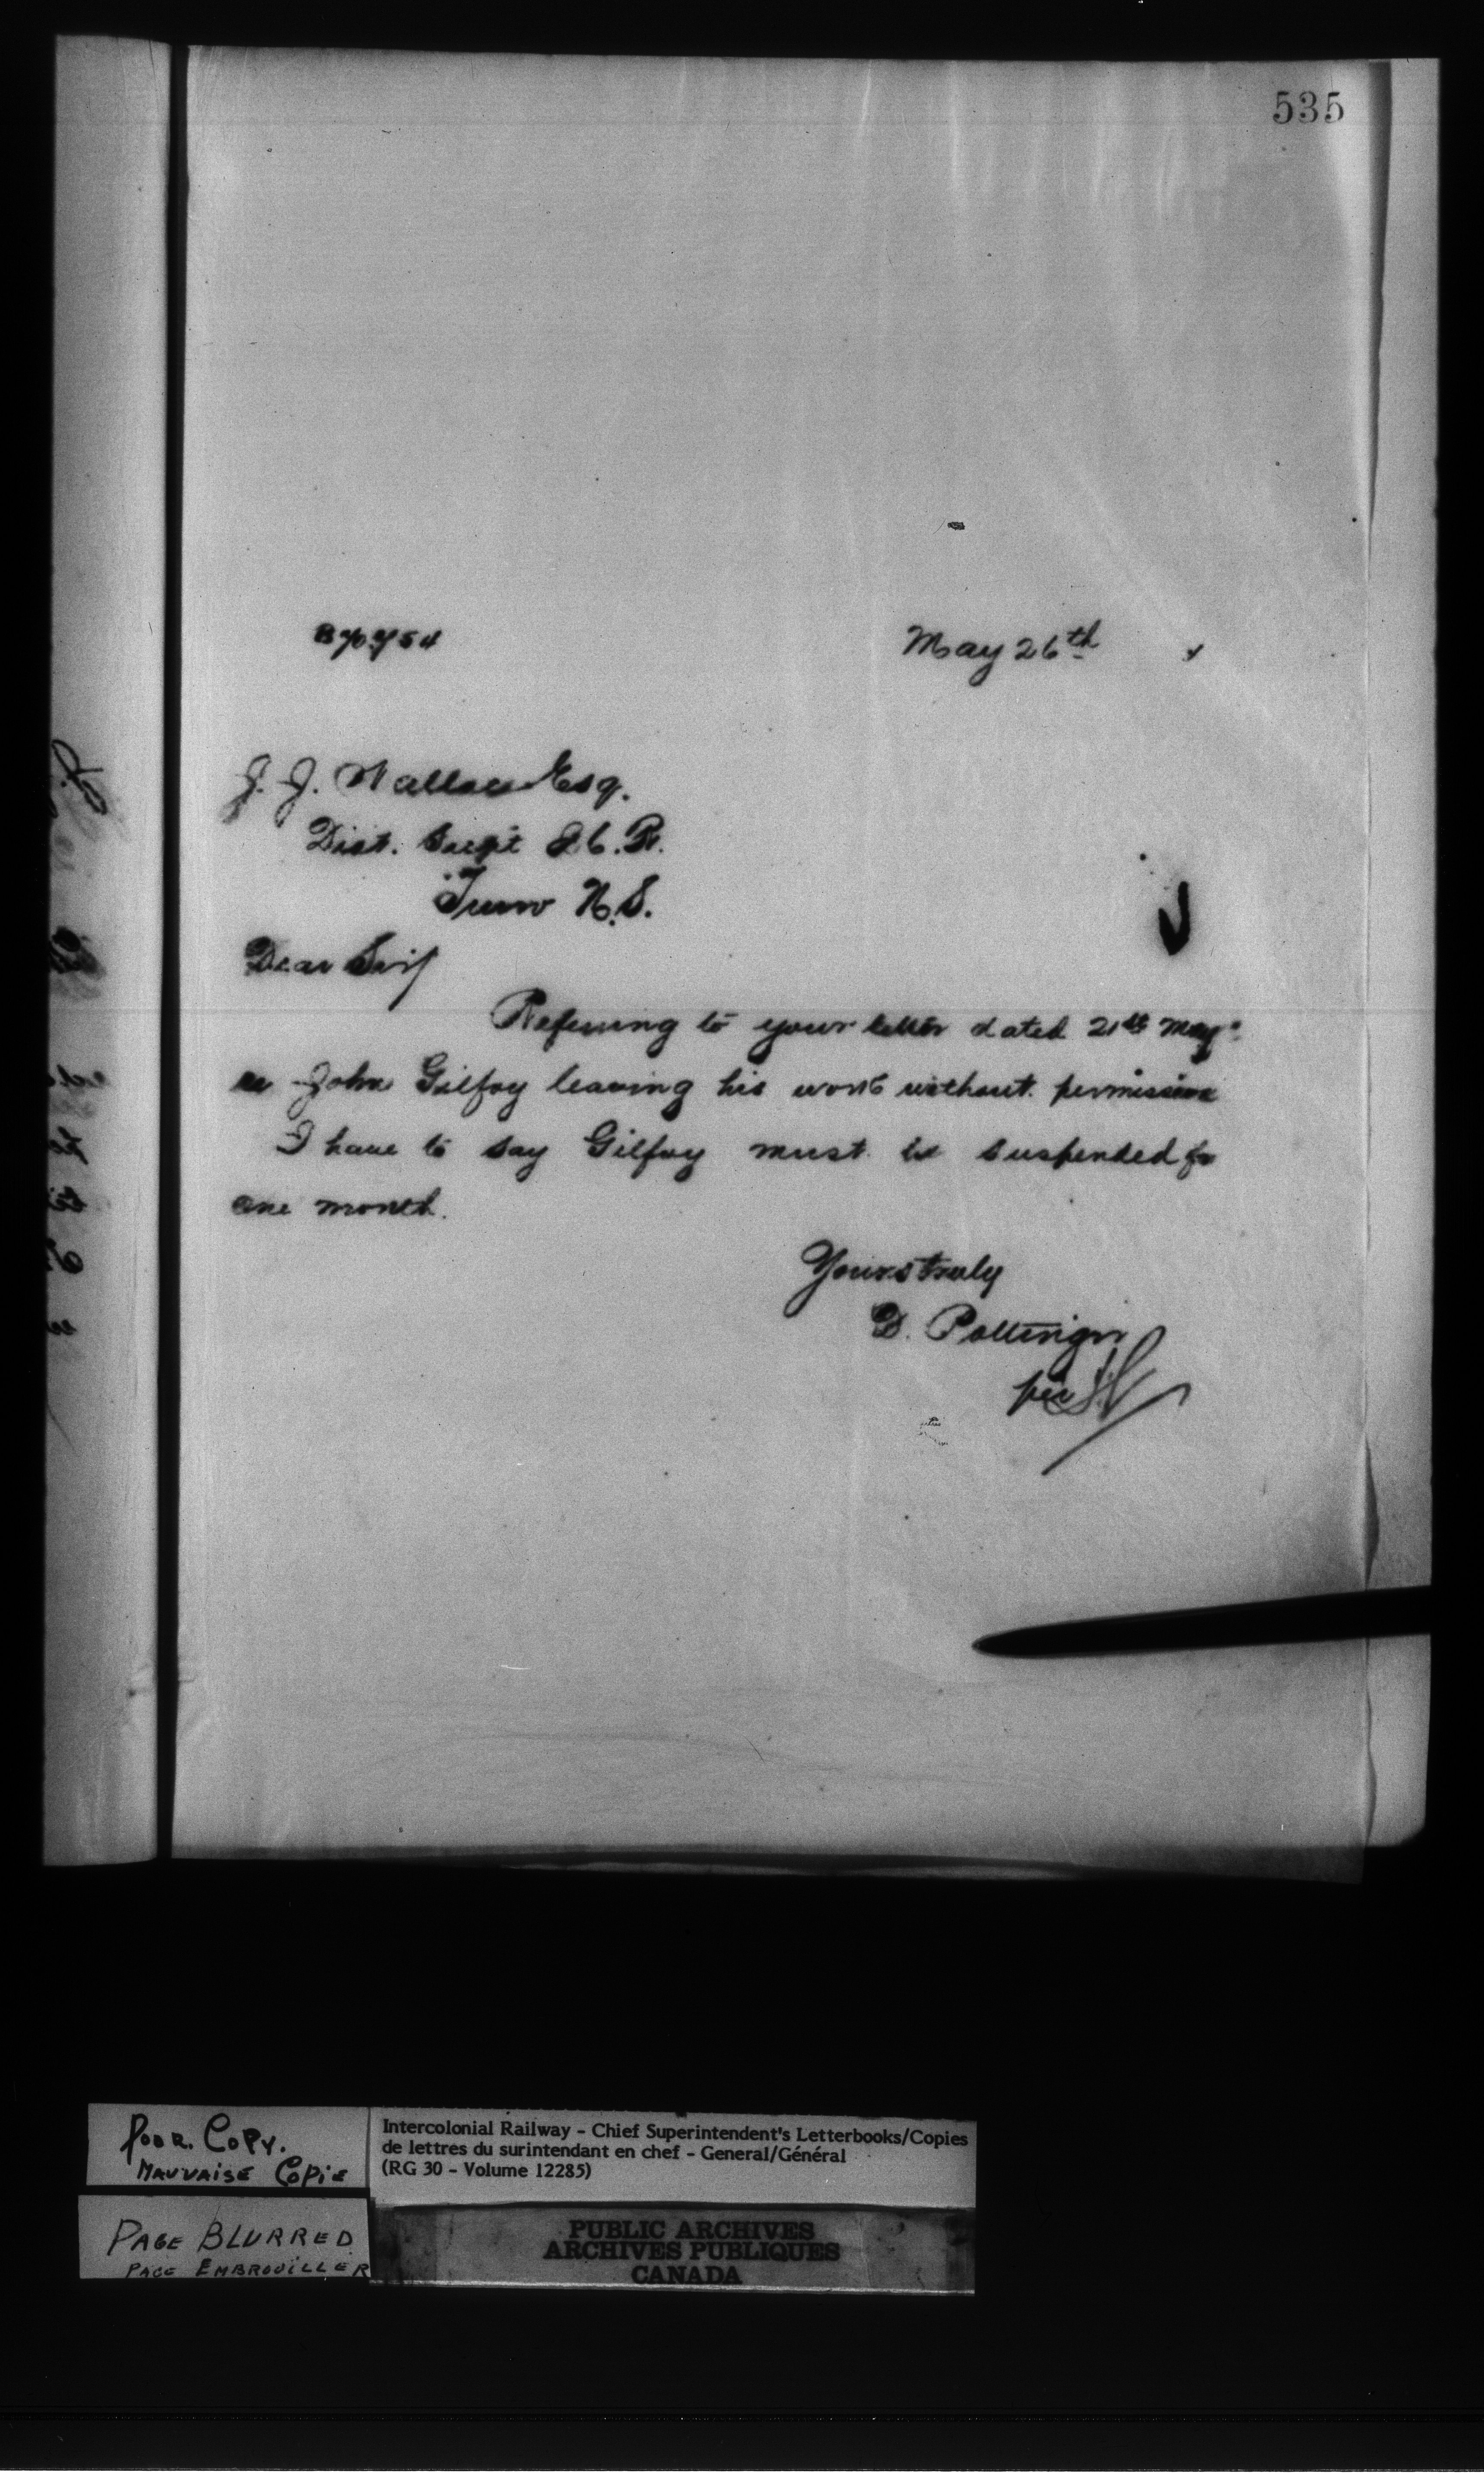 535
May 26th
J. J. Wallace Esq.
Dist. Supt I.C.R.
Truro N.S.
Dear Sir/
Referring to your letter dated 21st May
re John Gilfoy leaving his work without permission
I have to say Gilfoy must be suspended for
one month.
Yours truly
D. Pottinger
per
Poor. Copy.
Mauvaise Copie
Page Blurred
Page Embrouiller
Intercolonial Railway - Chief Superintendent's Letterbooks/Copies
de lettres du surintendant en chef - General/Général
(RG 30 - Volume 12285)
PUBLIC ARCHIVES
ARCHIVES PUBLIQUES
CANADA